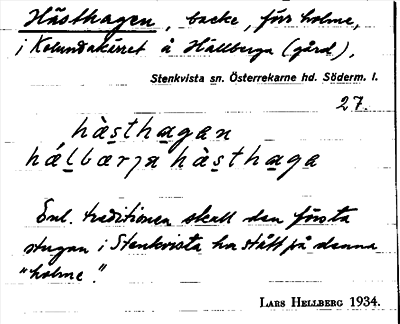 Hästhagen, backe, förr holme,
i Kolundakärret å Hällberga (gård),
Stenkvista sn. Österrekarne hd. Söderm. l.
27.
hàsthagan
hálbærja hàsthaga
Enl. traditionen skall den första
stugan i Stenkvista ha stått på denna
"holme".
LARS HELLBERG 1934.